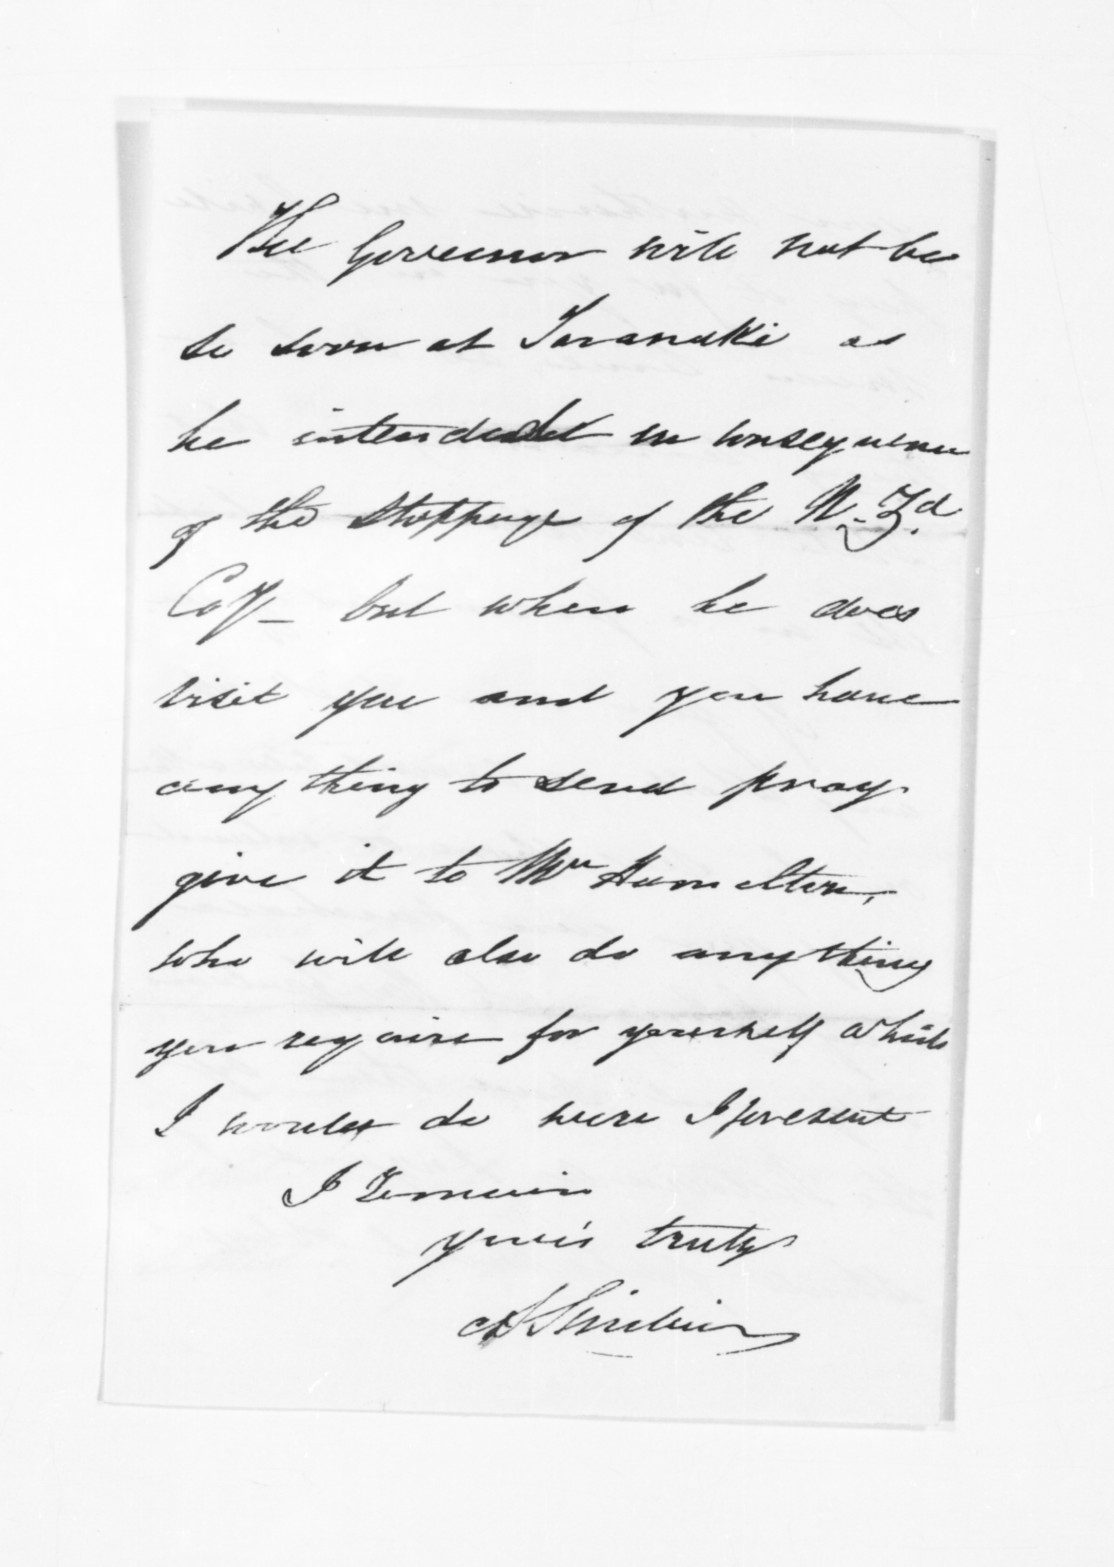 The Governor will not be
so soon at Taranaki as
he intended in consequence
of the stoppage of the N. Zd
Coy_ but when he does
visit you and you have
any thing to send pray
give it to Mr Hamilton,
who will also do any thing
you require for yourself which
I would do were I present
I remain
yours truly
A Sinclair